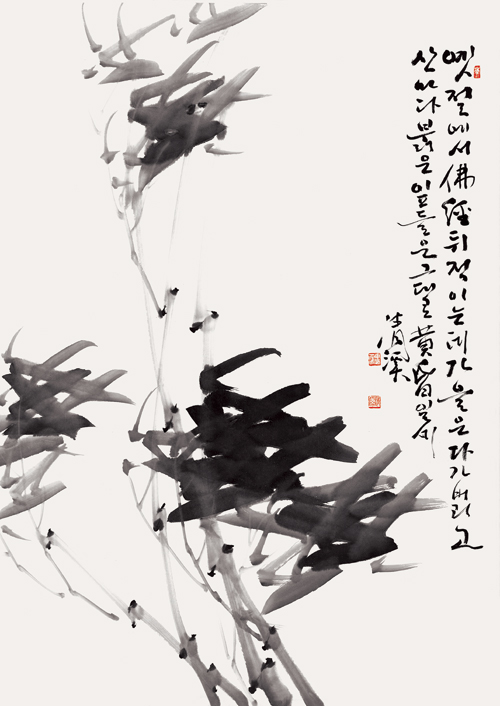 옛절에서佛經뒤적이는데가을은다가버리고
산마다붉은잎들은그대로黃昏일세